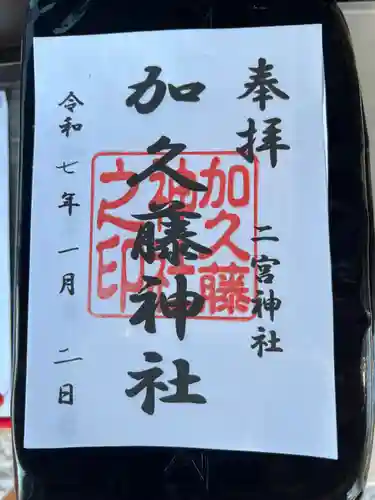 奉拝
二宮神社
加久藤神社
加久藤
神社
之印
令和七年一月二日